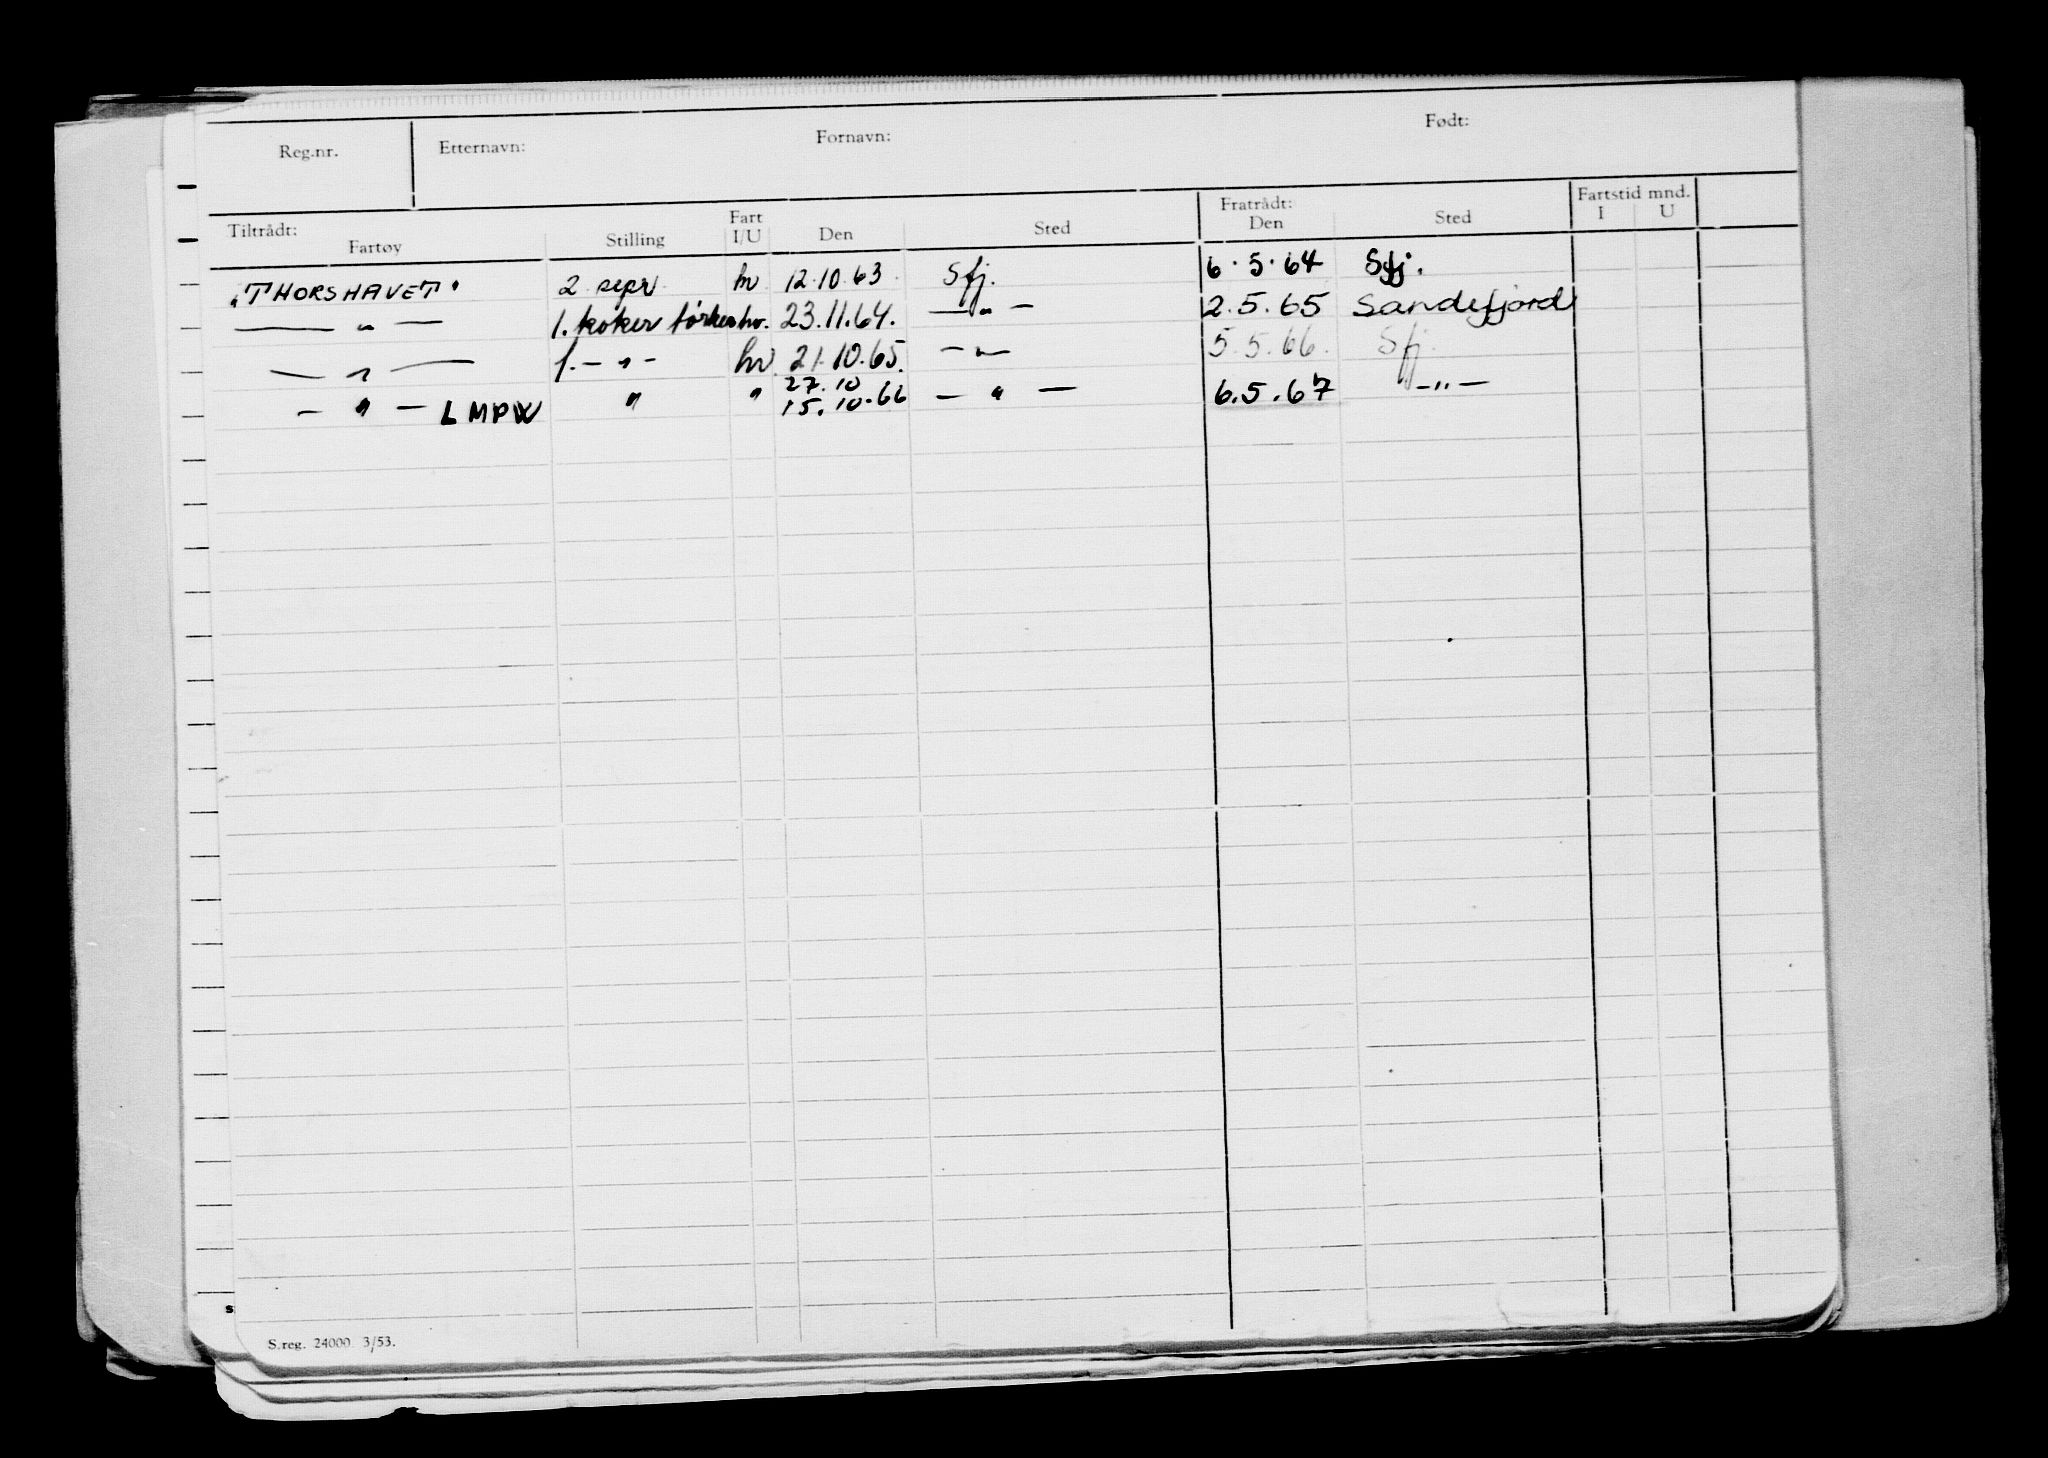 Reg.nr. Etternavn: Fornavn: Født:
Tiltrådt: Fartøy Stilling Fart I/U Den Sted Fratrådt: Den Sted Fartstid mnd. I U
"THORSHAVET" 2 sepr hv 12.10.63. Sfj. 6.5.64 Sfj.
— " — 1. koker tørker hv. 23.11.64. — " — 2.5.65 Sandefjord
— " — 1. — " — hv 21.10.65. — " — 5.5.66. Sfj.
27.10
— " — LMPW " " 15.10.66 — " — 6.5.67 — " —
S.reg. 24000 3/53.